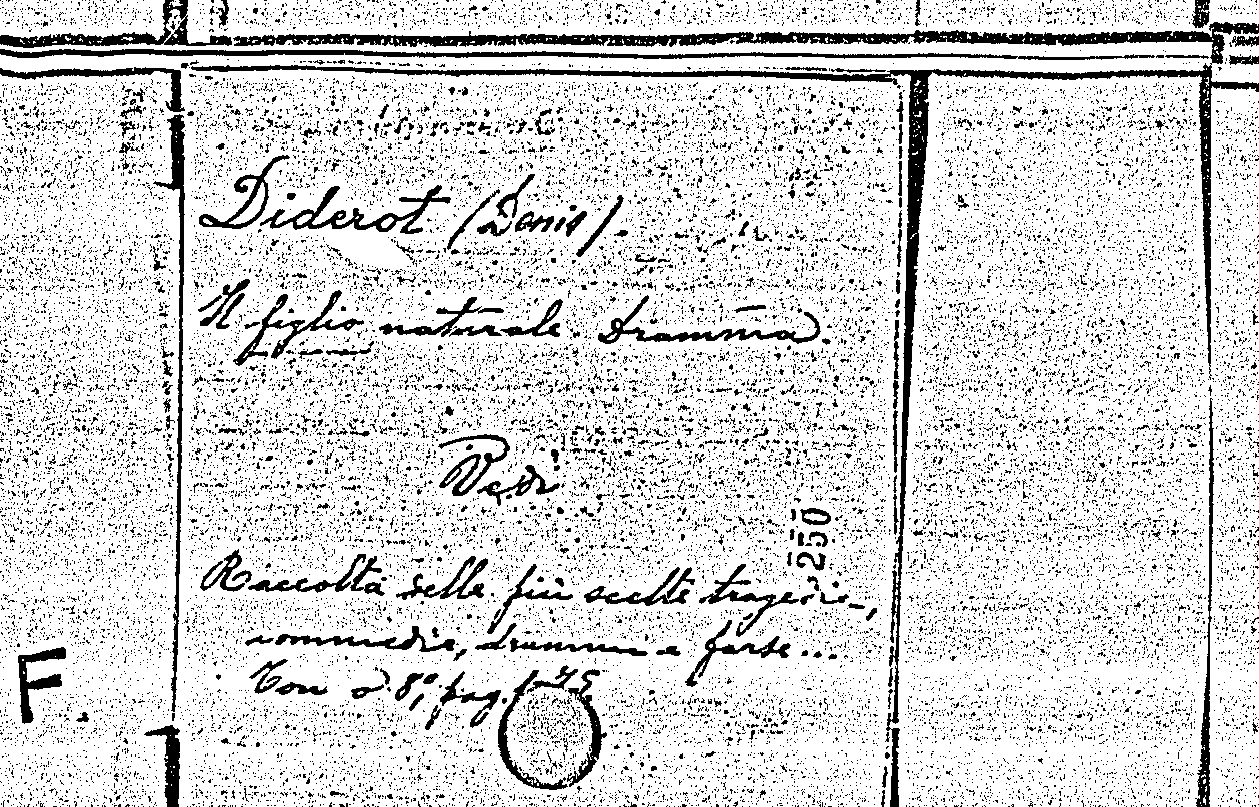 Diderot (Denis).
Il figlio naturale. Dramma.
Vedi
Raccolta delle più scelte tragedie,
commedie, drammi e farse...
Tom 8°, pag.
250
F.